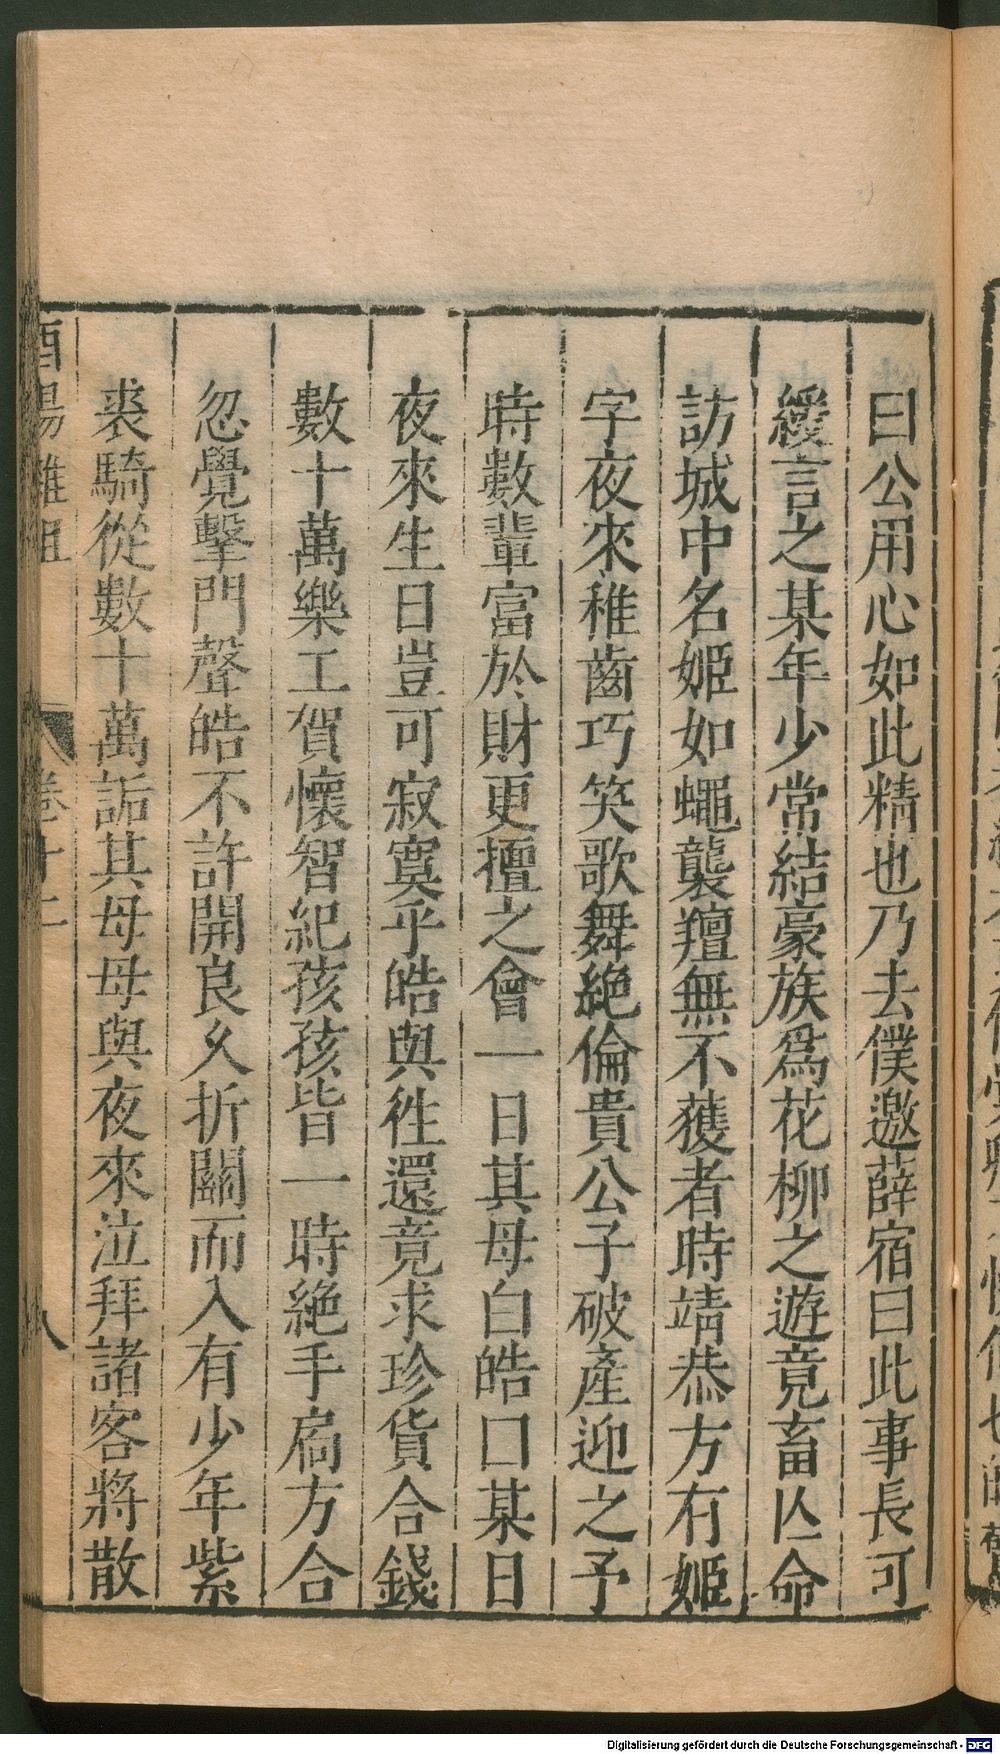 曰公用心如此精也乃去僕邀薛宿曰此事長可
緩言之某年少常結豪族爲花柳之遊竟畜亾命
訪城中名姬如蠅襲羶無不獲者時靖恭方有姬
字夜來稚齒巧笑歌舞絶倫貴公子破產迎之予
時數輩富於財更擅之會一日其母白皓曰某日
夜來生日豈可寂寞乎皓與徃還竟求珍貨合錢
數十萬樂工賀懷智紀孩孩皆一時絶手扃方合
忽覺擊門聲皓不許開良久折關而入有少年紫
裘騎從數十萬詬其母母與夜來泣拜諸客將散
酉陽雜俎
卷十二
八
Digitalisierung gefördert durch die Deutsche Forschungsgemeinschaft - DFG